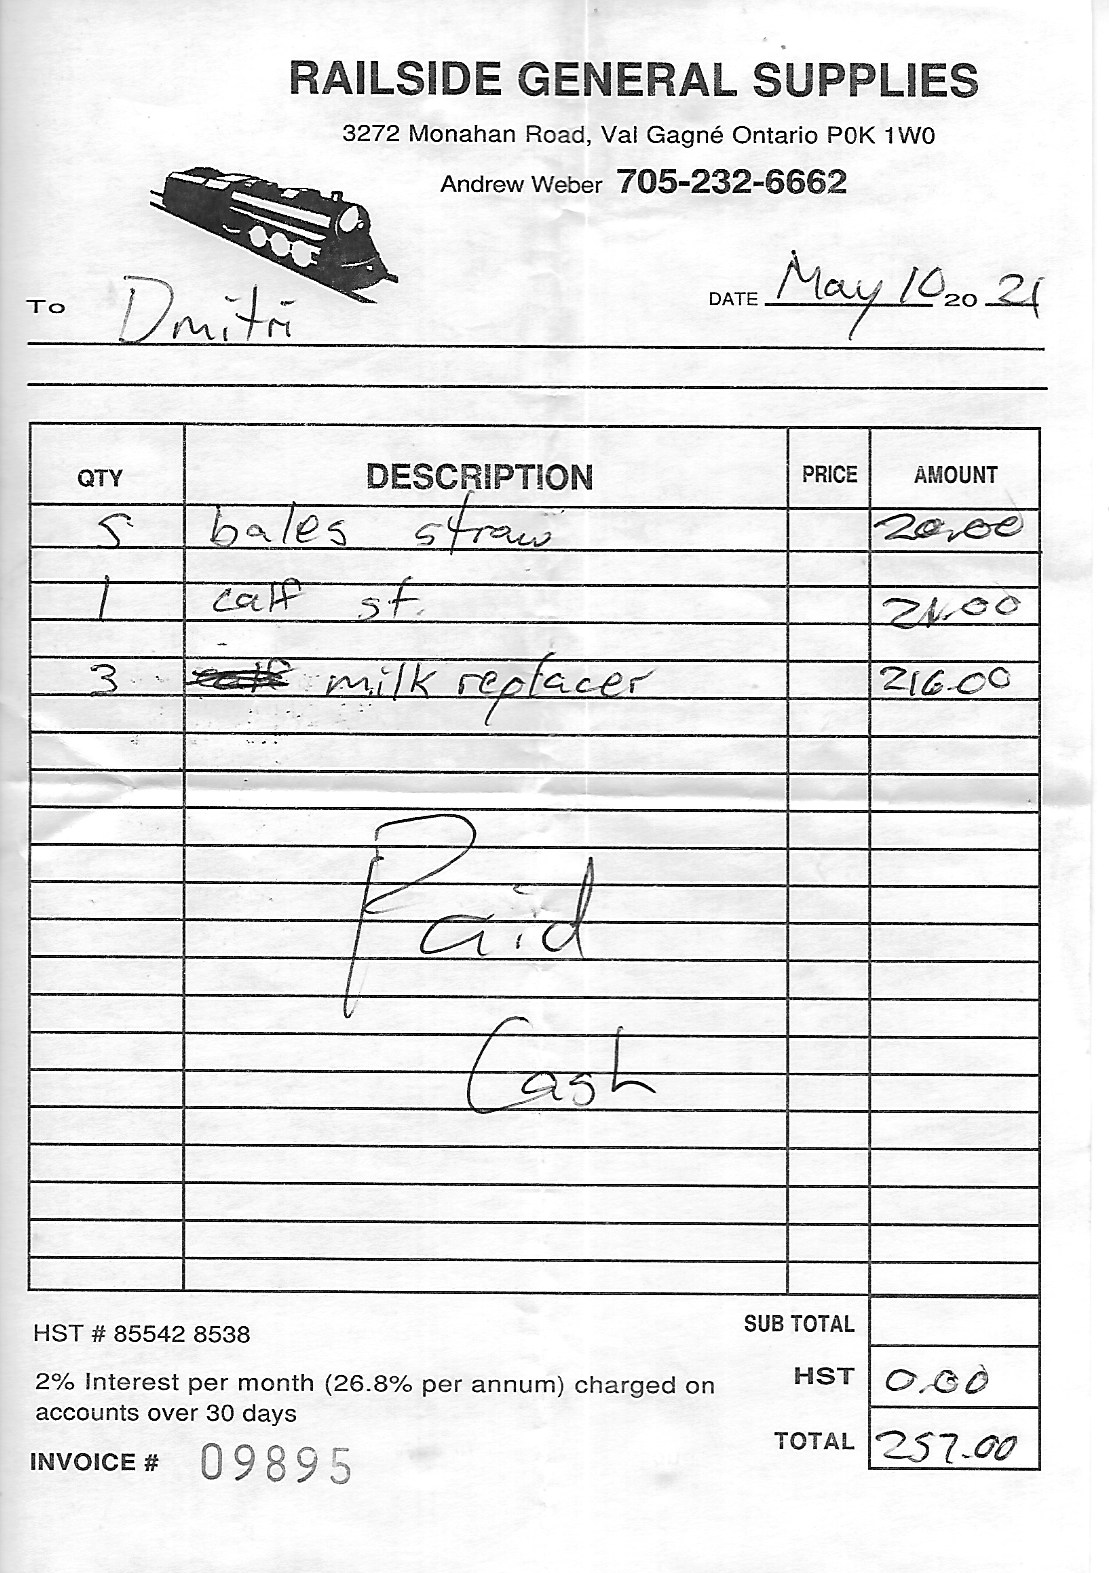 RAILSIDE GENERAL SUPPLIES
3272 Monahan Road, Val Gagné Ontario P0K 1W0
Andrew Weber 705-232-6662
To Dmitri
DATE May 10 20 21
QTY DESCRIPTION PRICE AMOUNT
5 bales straw 20.00
1 calf st. 21.00
3 milk replacer 216.00
Paid
Cash
SUB TOTAL
HST # 85542 8538
HST 0.00
2% Interest per month (26.8% per annum) charged on
accounts over 30 days
TOTAL 257.00
INVOICE # 09895